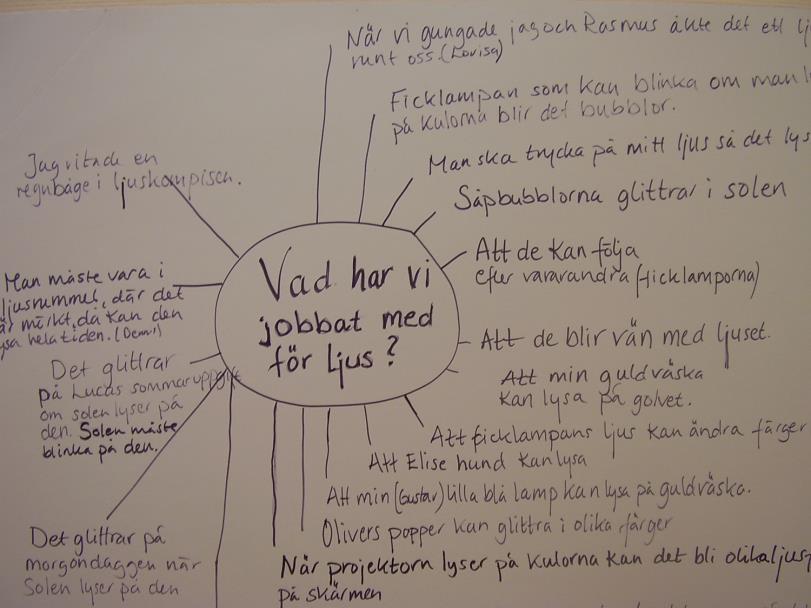 När vi gungade jag och Rasmus åkte det ett
runt oss. (Lovisa)
Ficklampan som kan blinka om man
på kulorna blir det bubblor.
Man ska trycka på mitt ljus så det
Såpbubblorna glittrar i solen
Att de kan följa
efter vararandra (ficklamporna)
Att de blir vän med ljuset.
Att min guldväska
kan lysa på golvet.
Att ficklampans ljus kan ändra färger
Att Elise hund kan lysa
Att min (Gustav) lilla blå lamp kan lysa på guldväska.
Olivers popper kan glittra i olika färger
När projektorn lyser på kulorna kan det bli olika
på skärmen
Vad har vi
jobbat med
för ljus?
Jag ritade en
regnbåge i ljuskompisen.
Man måste vara i
ljusrummet, där det
är mörkt, då kan den
lysa hela tiden.
Det glittrar
på Lucas sommaruppgift
om solen lyser på
den. Solen måste
blinka på den.
Det glittrar på
morgondaggen när
Solen lyser på den